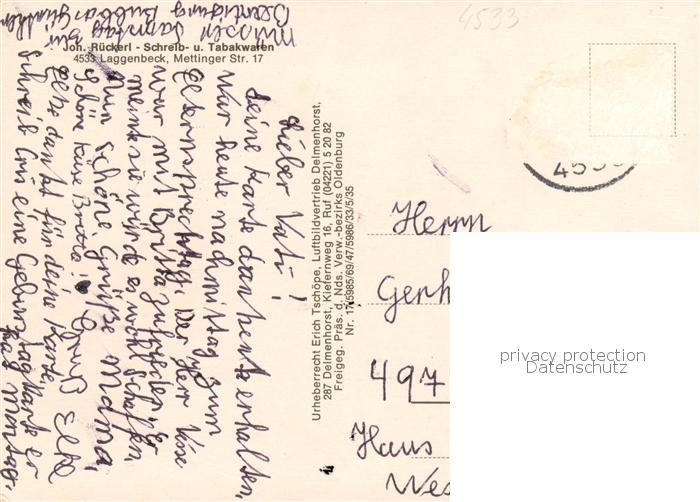 4533
Joh. Rückerl - Schreib- u. Tabakwaren
4533 Laggenbeck, Mettinger Str. 17
Lieber Vati!
Deine Karte dankend erhalten,
war heute nachmittag zum
Elternsprechtag. Der Herr
war mit Britta zufrieden. Er
meinte sie würde es wohl schaffen
Nun schöne Grüße Mama,
Schöne Grüße Britta! Gruß Elke
danke für deine Karte
Schreib Cris eine Geburtstagskarte er
hat montag
müssen Samstag zur
Beerdigung
Urheberrecht Erich Tschöpe, Luftbildvertrieb Delmenhorst,
287 Delmenhorst, Kiefernweg 16, Ruf (04221) 5 20 82
Freigeg. Präs. d. Nds. Verw.-bezirks Oldenburg
Nr. 17/5985/69/47/5986/33/5/35
453
Herrn
Gerh
497
Haus
Wes
privacy protection
Datenschutz